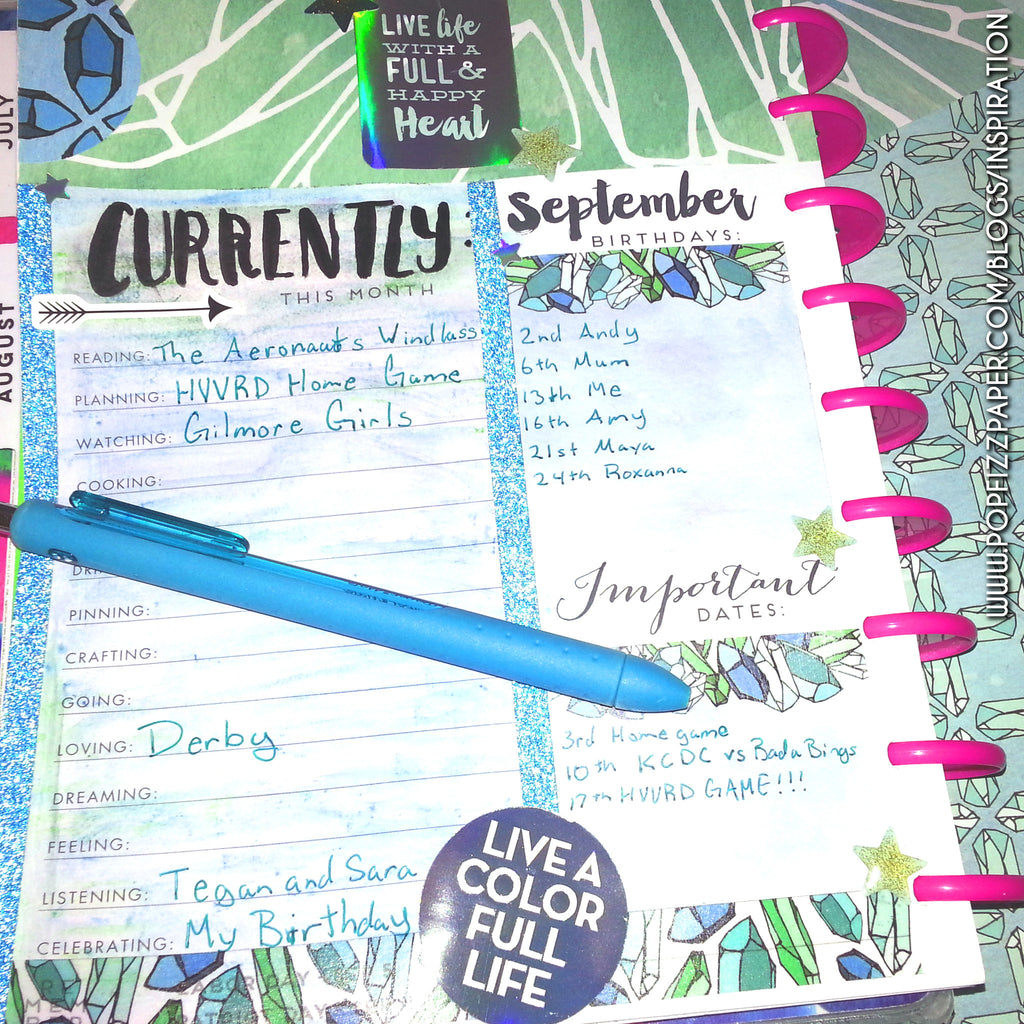 JULY
AUGUST
LIVE life
WITH A
FULL &
HAPPY
Heart
CURRENTLY:
THIS MONTH
READING: The Aeronauts Windlass
PLANNING: HVVRD Home Game
WATCHING: Gilmore Girls
COOKING:
PINNING:
CRAFTING:
GOING:
LOVING: Derby
DREAMING:
FEELING:
LISTENING: Tegan and Sara
CELEBRATING: My Birthday
September
BIRTHDAYS:
2nd Andy
6th Mum
13th Me
16th Amy
21st Maya
24th Roxanna
Important
DATES:
3rd Home game
10th KCDC vs Bada Bings
17th HVVRD GAME!!!
LIVE A
COLOR
FULL
LIFE
WWW.POPFIZZPAPER.COM/BLOGS/INSPIRATION